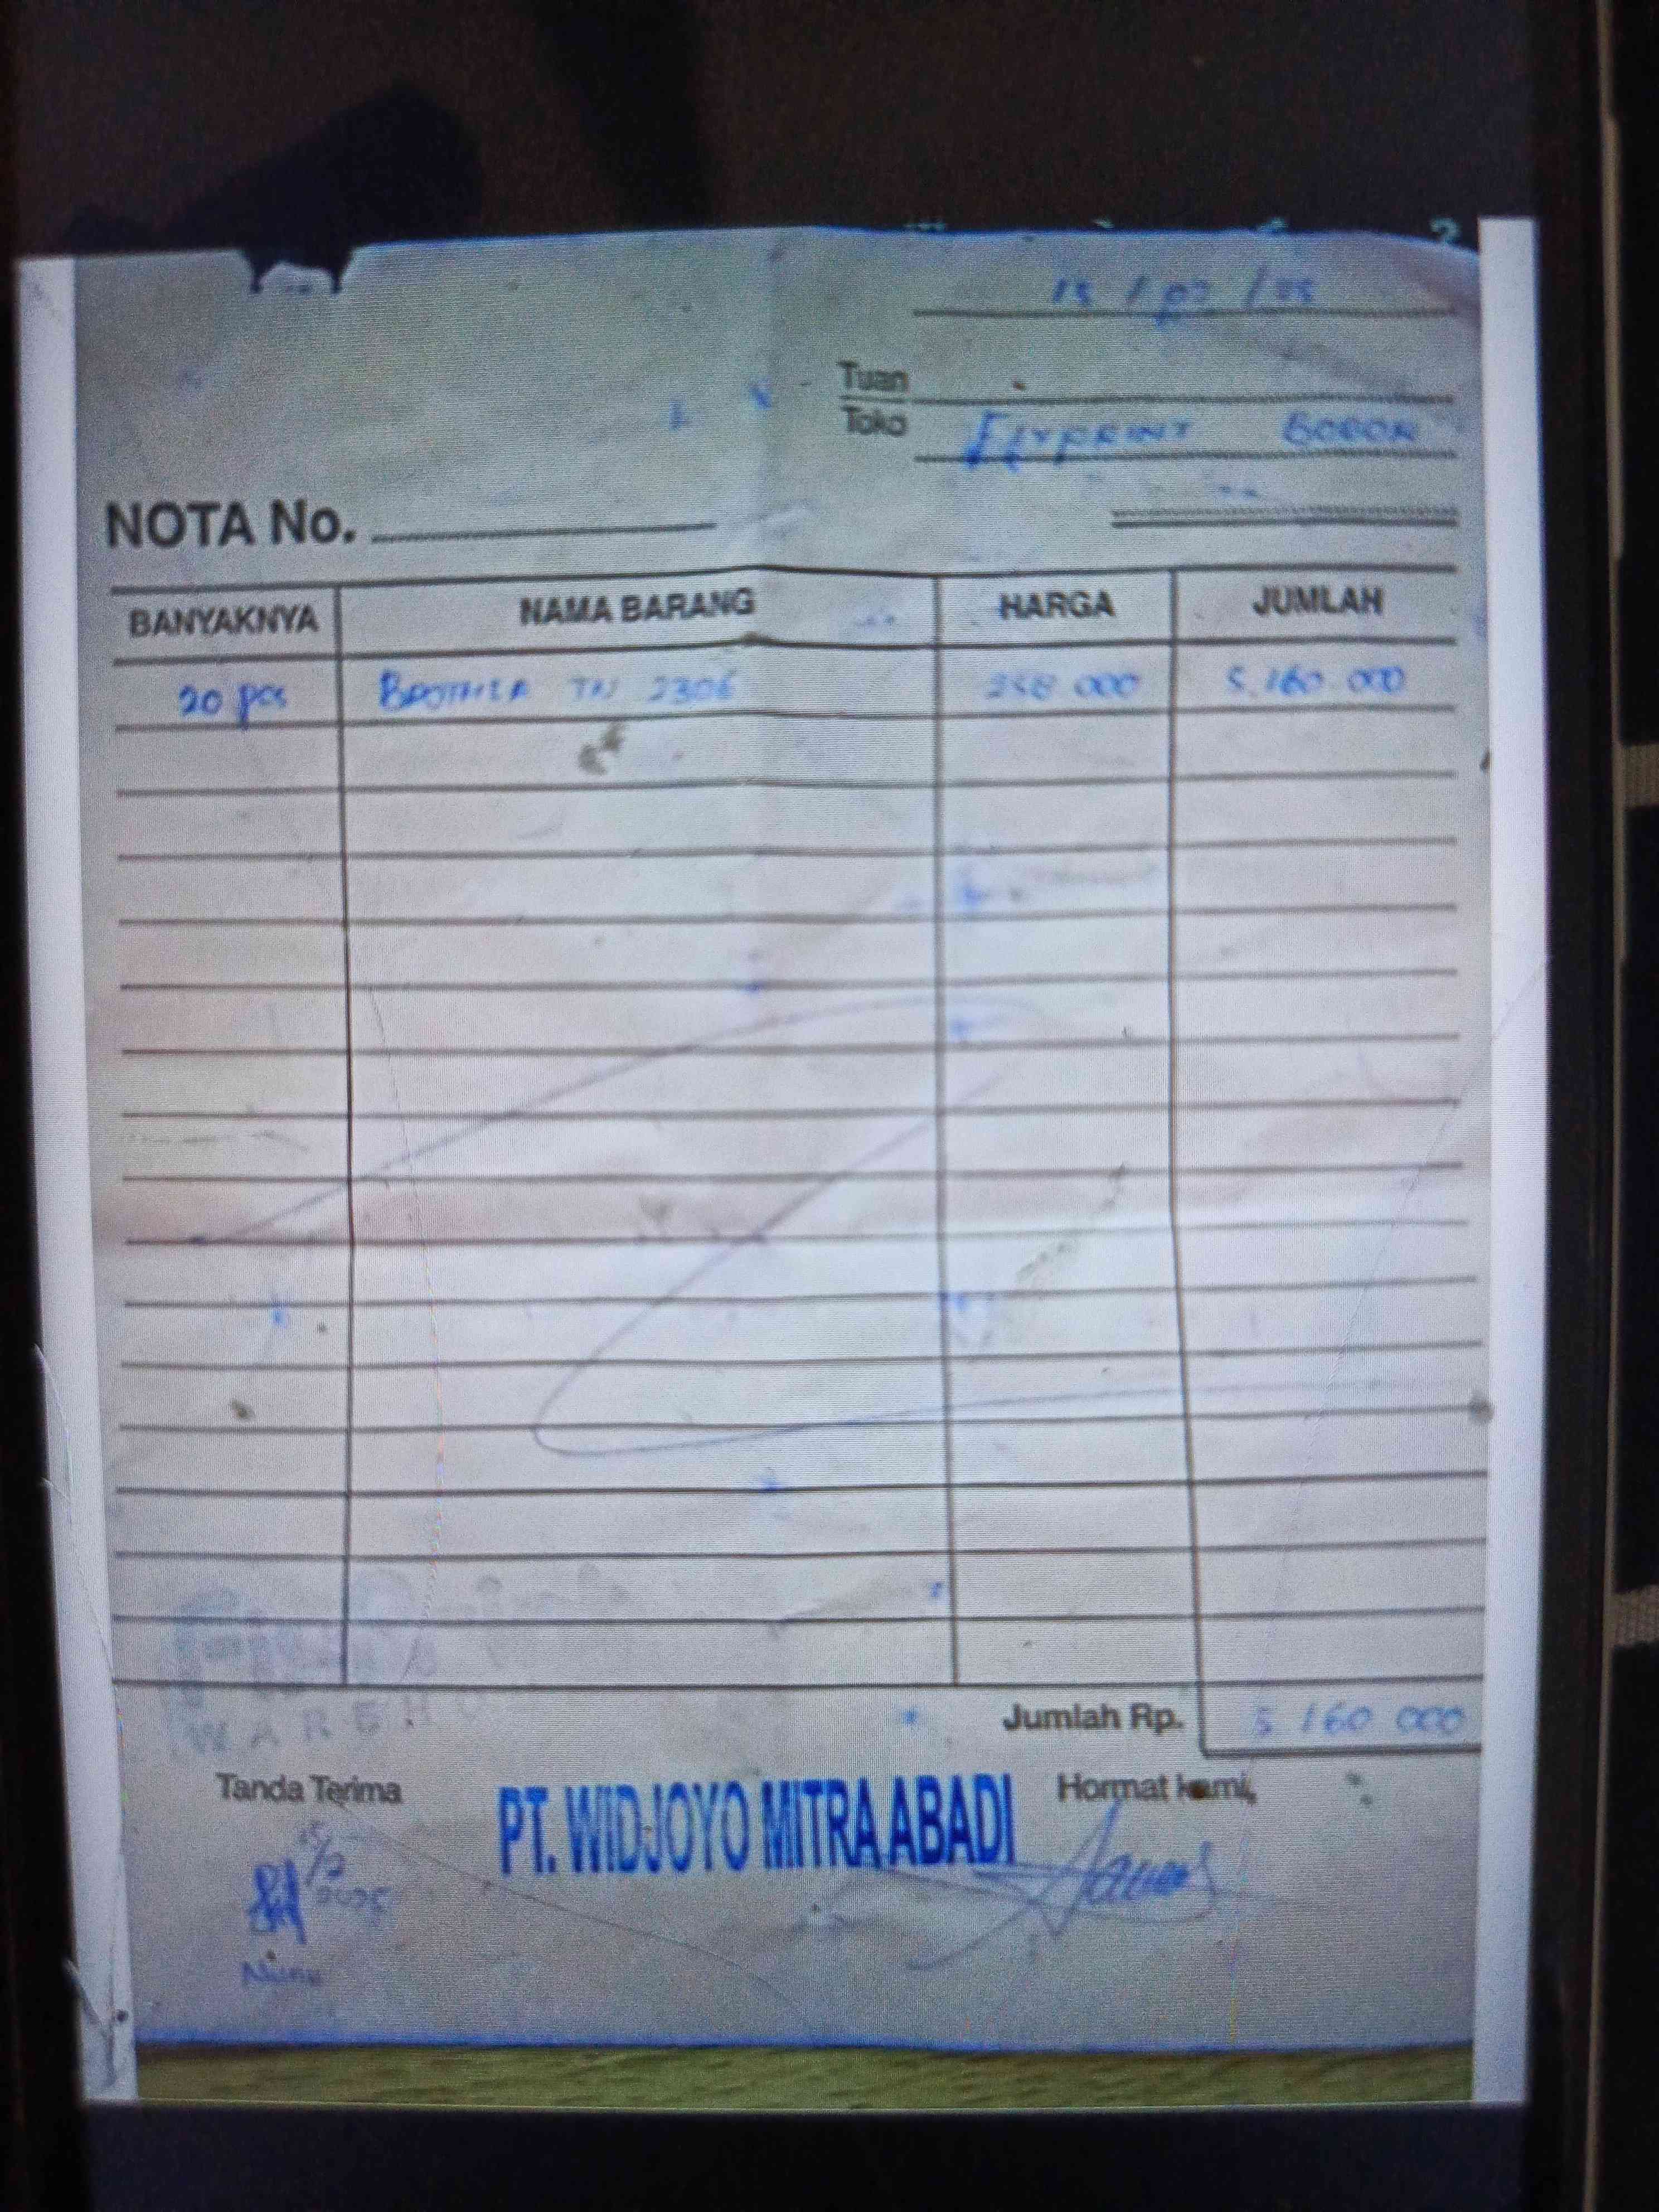 15 / 07 / 25
Tuan
Toko
NOTA No.
BANYAKNYA NAMA BARANG HARGA JUMLAH
20 pcs BROTHER TN 2306 258 000 5.160.000
Jumlah Rp. 5 160 000
WAREHO
Tanda Terima PT. WIDJOYO MITRA ABADI Hormat kami,
15/7
2025